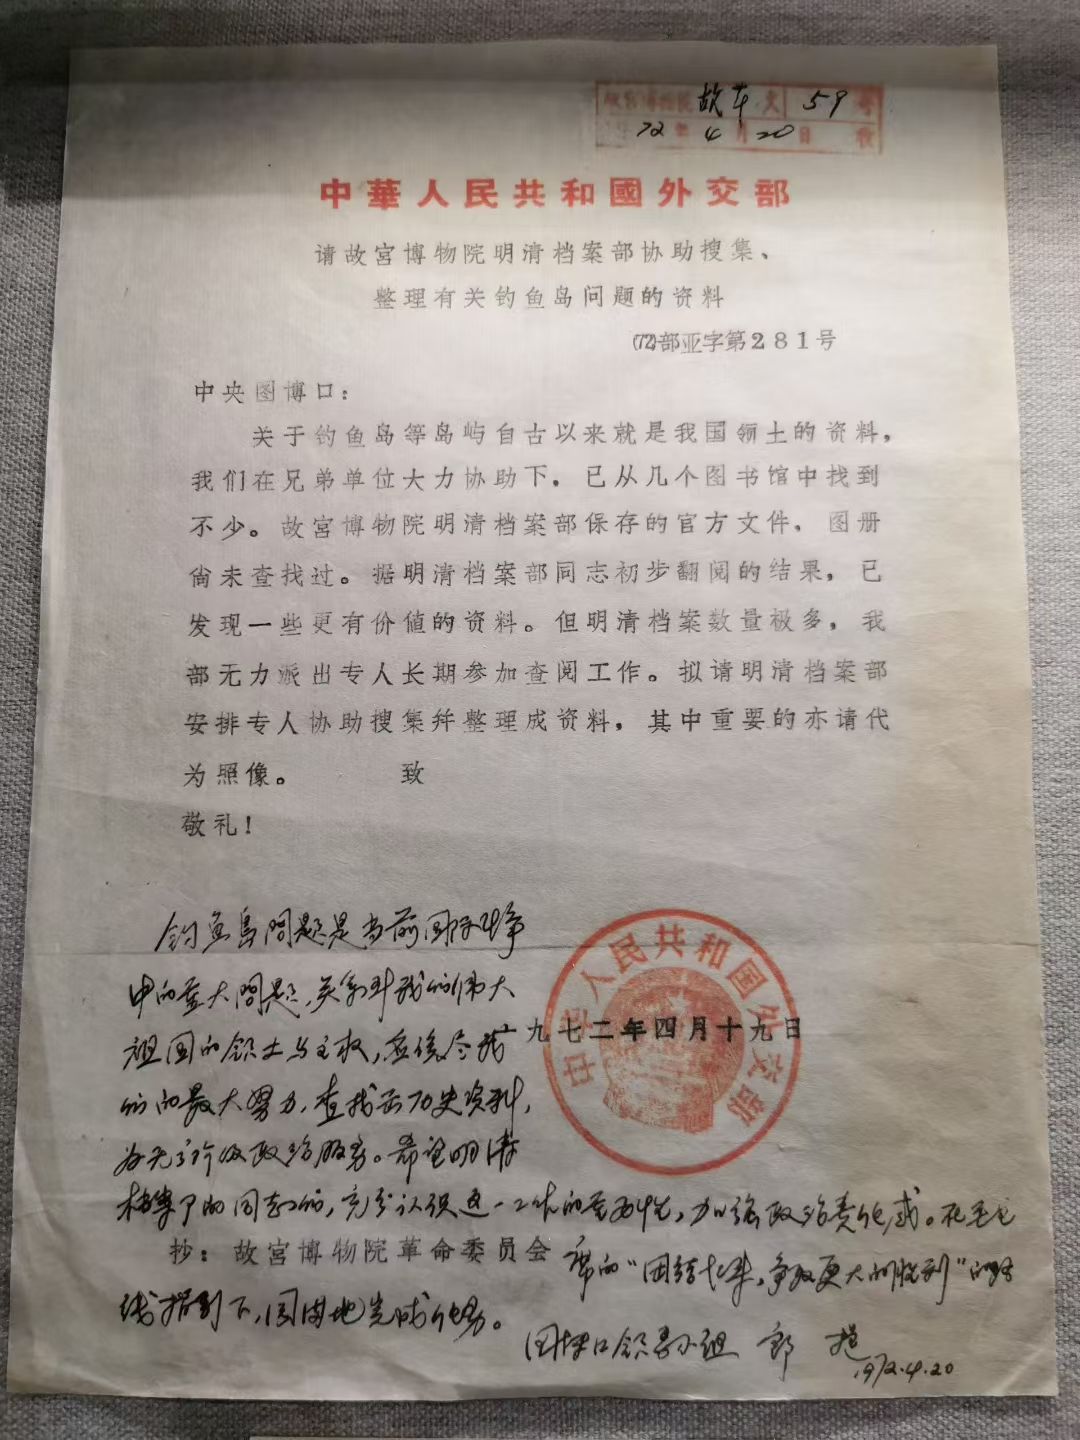 故宫博物院 故革文 59号
72年4月20日 收
中華人民共和國外交部
请故宫博物院明清档案部协助搜集、
整理有关钓鱼岛问题的资料
(72)部亚字第281号
中央图博口：
关于钓鱼岛等岛屿自古以来就是我国领土的资料，
我们在兄弟单位大力协助下，已从几个图书馆中找到
不少。故宫博物院明清档案部保存的官方文件、图册
尚未查找过。据明清档案部同志初步翻阅的结果，已
发现一些更有价值的资料。但明清档案数量极多，我
部无力派出专人长期参加查阅工作。拟请明清档案部
安排专人协助搜集并整理成资料，其中重要的亦请代
为照像。 致
敬礼！
中华人民共和国外交部
一九七二年四月十九日
钓鱼岛问题是当前国际斗争
中的重大问题，关系到我们伟大
祖国的领土与主权，应该尽我
们的最大努力，查找出历史资料，
为无产阶级政治服务。希望明清
档案部的同志们，充分认识这一工作的重要性，加强政治责任感。在毛主
席的“团结起来，争取更大的胜利”的路
线指引下，圆满地完成任务。
抄：故宫博物院革命委员会
图博口领导小组 郎
1972.4.20